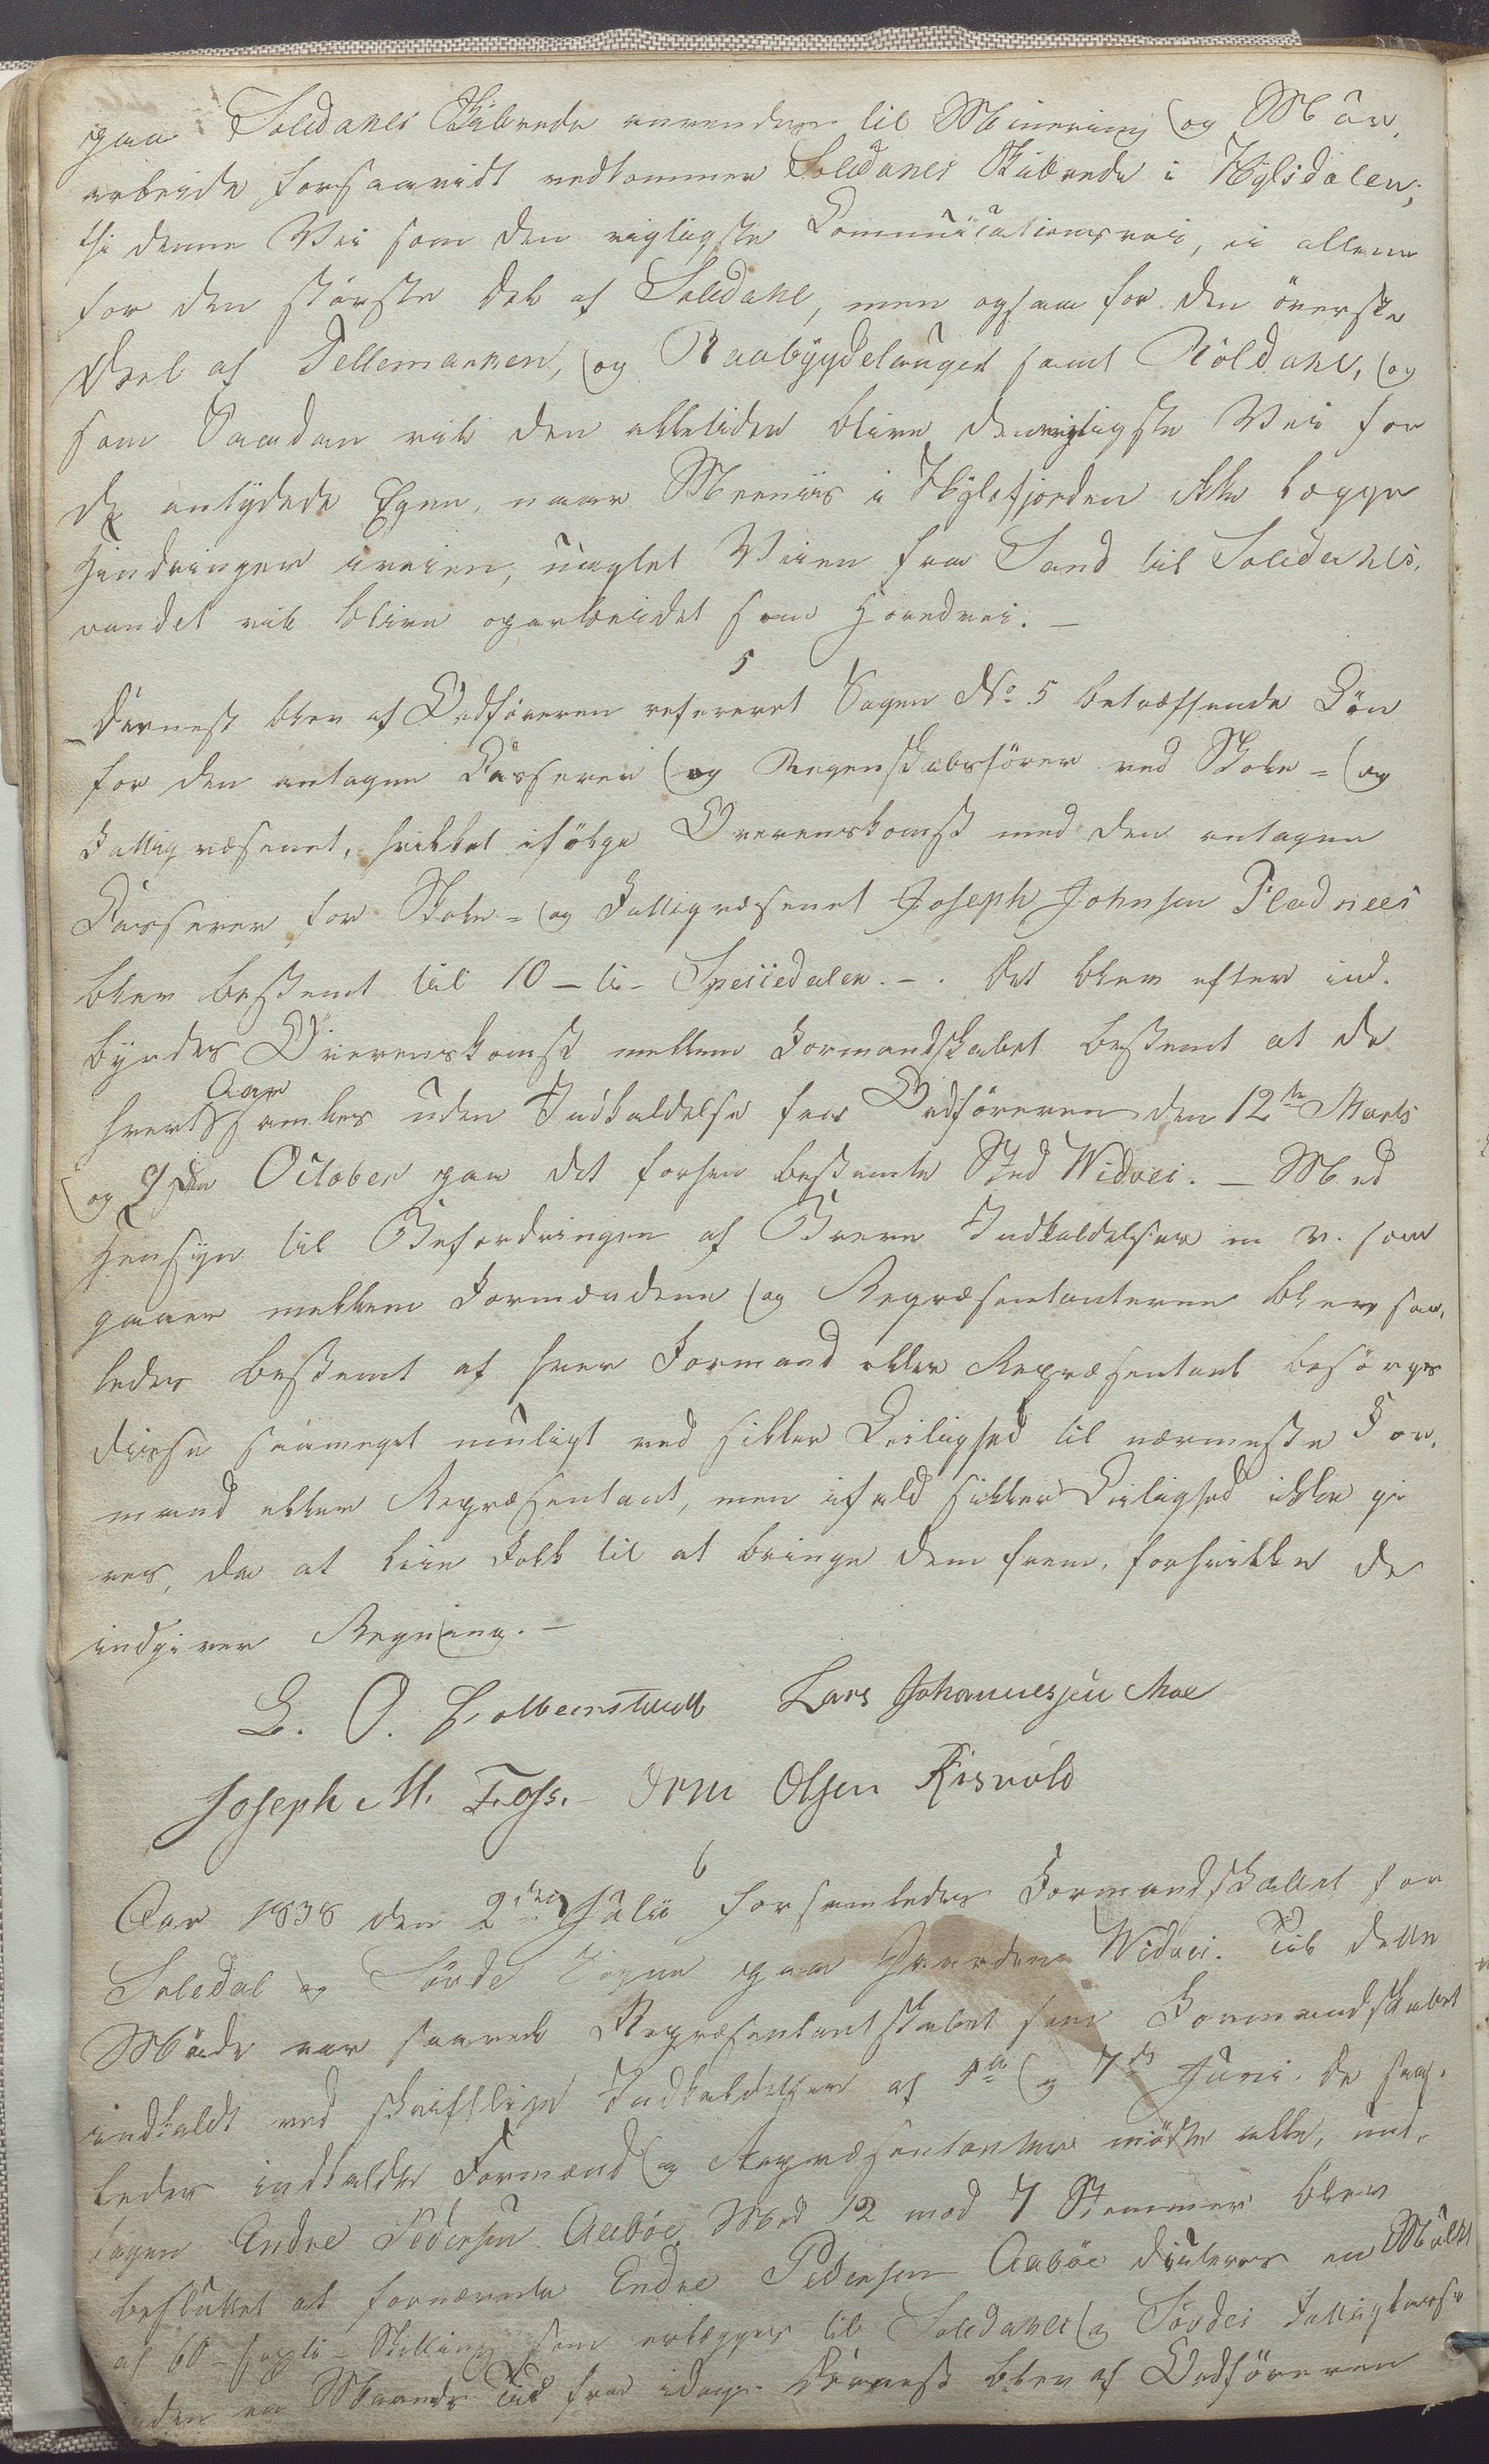 paa Soledahls Skibrede anvendes til Minering og Mur-
arbeide forsaavidt vedkommer Soledahls Skibrede i Hylsdalen;
thi denne Vei som den vigtigste Communicationsvei, ei allene
for den störste Del af Soledahl, men ogsaa for den överste
Deel af Tellemarken, og Raabygdelauget samt Röldahl, og
som Saadan vil den alletider blive den vigtigste Vei for
de antydede Egne, naar Meeniis i Hylsfjorden ikke lægge
Hindringer iveien, uagtet Veien fra Sand til Soledahls-
vandet vil blive oparbeidet som Hovedvei. —
5
Dernest blev af Ordföreren refereret Sagen No 5 betræffende Lön
for den antagne Casserer og Regnskabsförer ved Skole- og
Fattigvæsenet, hvilket ifölge Overenskomst med den antagne
Casserer for Skole- og Fattigvæsenet Joseph Johnsen Fladnees
blev bestemt til 10 – ti – Speciedaler. –. Det blev efter ind-
byrdes Overenskomst mellem Formandskabet bestemt at de
hvert Aar samles uden Indkaldelse fra Ordföreren den 12te Marts
og 9de October paa det forhen bestemte Sted Widvei. — Med
Hensyn til Befordringen af Breve Indkaldelser m. v. som
gaaer mellem Formændene og Repræsentanterne blev saa-
ledes bestemt at hver Formand eller Repræsentant besörger
disse saameget muligt ved sikker Leilighed til nærmeste For-
mand eller Repræsentant, men ifald sikker Leilighed ikke gi-
ves, da at leie Folk til at bringe dem frem, forhvilke de
indgiver Regning. –
Lars Johannesen Moe
Joseph M. Foss. – Orm Olsen Risvold
6
Aar 1838 den 2den Juli forsamledes Formandskabet for
Soledal og Sövde Sogne paa Gaarden Widvei. Til dette
Möde var saavel Repræsentantskabet som Formandskabet
indkaldt ved skriftlige Indkaldelser af og 7de Juni. De saa-
ledes indkaldte Formænd og Repræsentanter mödte alle, und-
tagen Endre Pedersen Aaböe. Med 12 mod 7 Stemmer blev
besluttet at fornævnte Endre Pedersen Aaböe dicteres en Mulkt
af 60 – sexti – Skilling som erlægges til Soledahls og Sövdes Fattigkasse
inden en Maaneds Tid fra idag. Dernest blev af Ordföreren